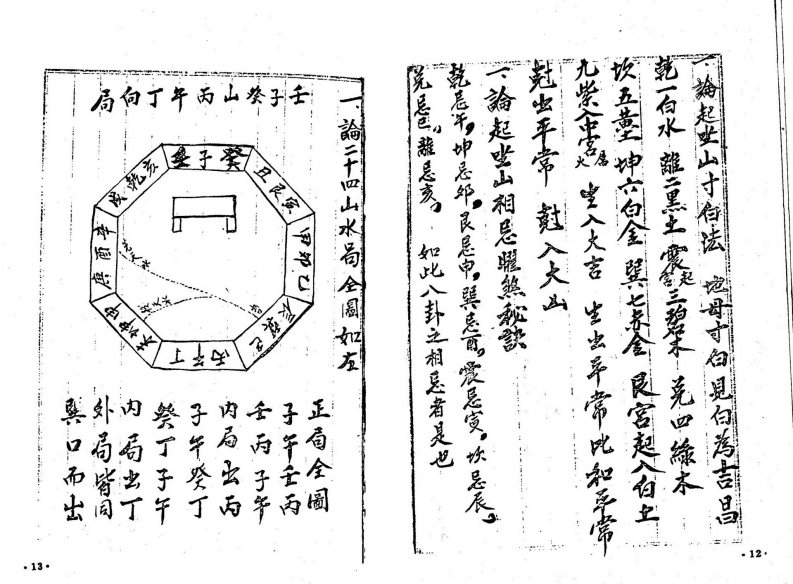 一、論起坐山寸白法 地母寸白見白為吉昌
乾一白水 離二黑土 震宮起三碧木 兌四綠木
坎五黃土 坤六白金 巽七赤金 艮宮起八白土
九紫入中宮屬火 生入大吉 生出平常比和平常
尅出平常 尅入大凶
一、論起坐山相忌曜煞秘訣
乾忌午，坤忌卯，艮忌申，巽忌酉，震忌寅，坎忌辰，
兌忌巳，離忌亥。 如此八卦之相忌者是也
·12·
一、論二十四山水局全圖如左
壬子癸山丙午丁向局
壬子癸
丑艮寅
甲卯乙
辰巽巳
丙午丁
未坤申
庚酉辛
戌乾亥
正局全圖
子午壬丙
壬丙子午
內局出丙
子午癸丁
癸丁子午
內局出丁
外局皆同
巽口而出
·13·